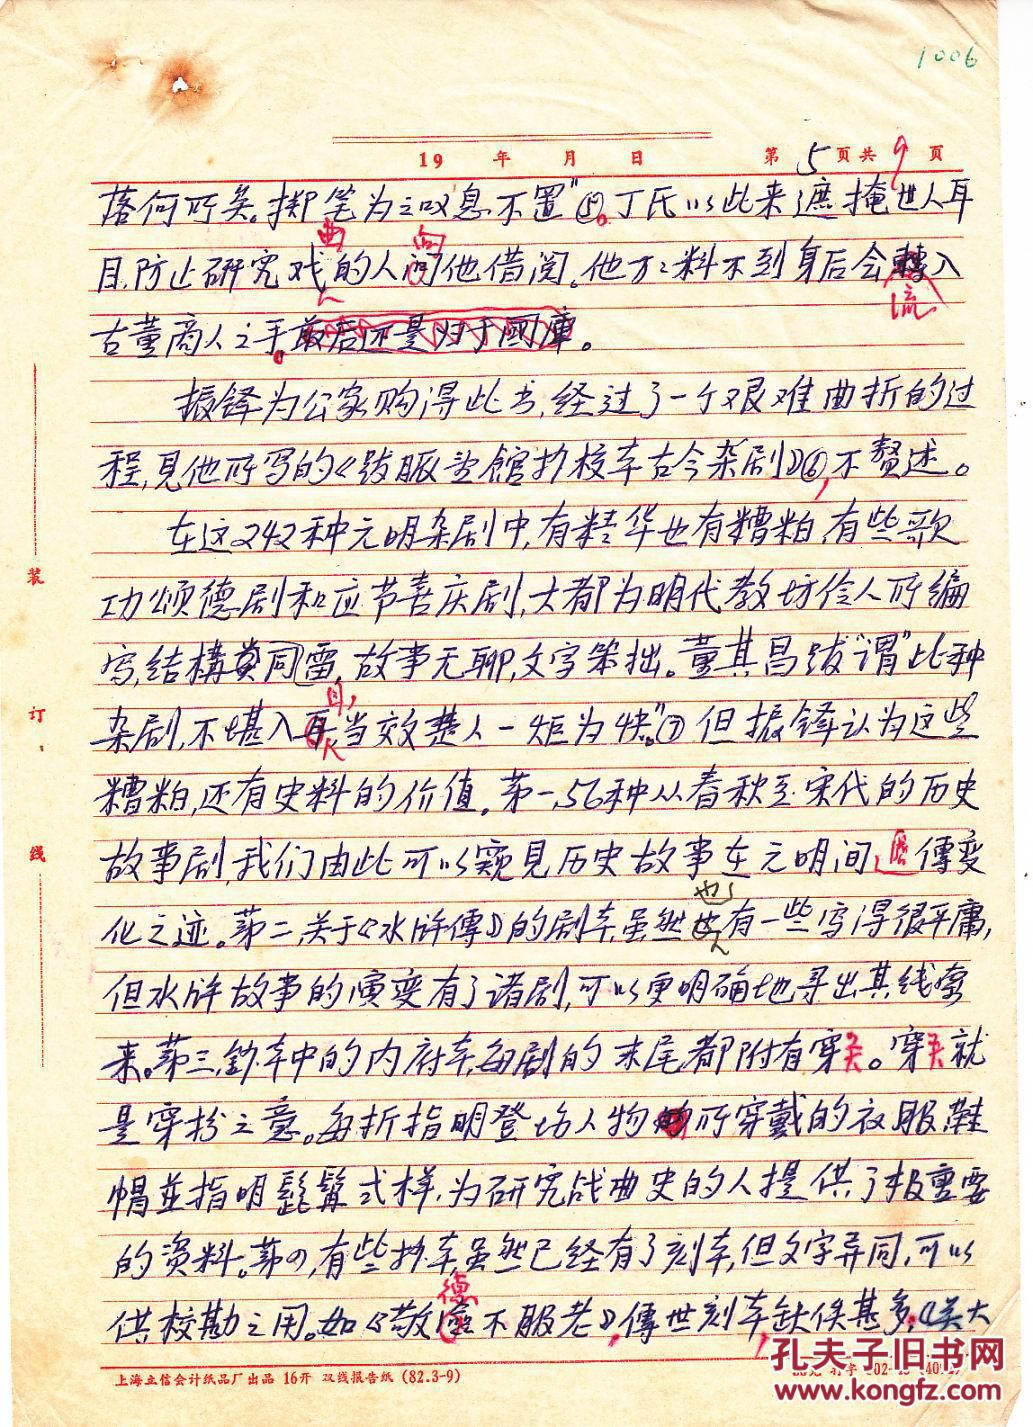 1006
19 年 月 日 第5页共9页
落何所矣。掷笔为之叹息不置"⑤。丁氏以此来遮掩世人耳
目,防止研究戏曲的人向他借阅。他万万料不到身后会流入
古董商人之手。最后还是归于國庫。
振铎为公家购得此书,经过了一个艰难曲折的过
程,见他所写的《跋脈望館抄校本古今杂剧》⑥,不赘述。
在这242种元明杂剧中,有精华也有糟粕,有些歌
功颂德剧和应节喜庆剧,大都为明代教坊伶人所编
写,结構类同雷,故事无聊,文字笨拙。董其昌跋谓"此种
杂剧,不堪入目,当效楚人一炬为快"⑦但振铎认为这些
糟粕,还有史料的价值。第一,56种从春秋至宋代的历史
故事剧,我们由此可以窥见历史故事在元明间傳变
化之迹。第二,关于《水浒傳》的剧本,虽然也有一些写得很平庸,
但水浒故事的演变有了诸剧,可以更明确地寻出其线索
来。第三,鈔本中的内府本,每剧的末尾,都附有穿关。穿关就
是穿扮之意。每折指明登场人物所穿戴的衣服,鞋
帽並指明髭髯式样,为研究战曲史的人提供了极重要
的资料。第四,有些抄本,虽然已经有了刻本,但文字异同,可以
供校勘之用。如《敬德不服老》,傳世刻本,缺佚甚多,《关大
装
订
线
上海立信会计纸品厂出品 16开 双线报告纸 (82.3-9)
孔夫子旧书网
www.kongfz.com